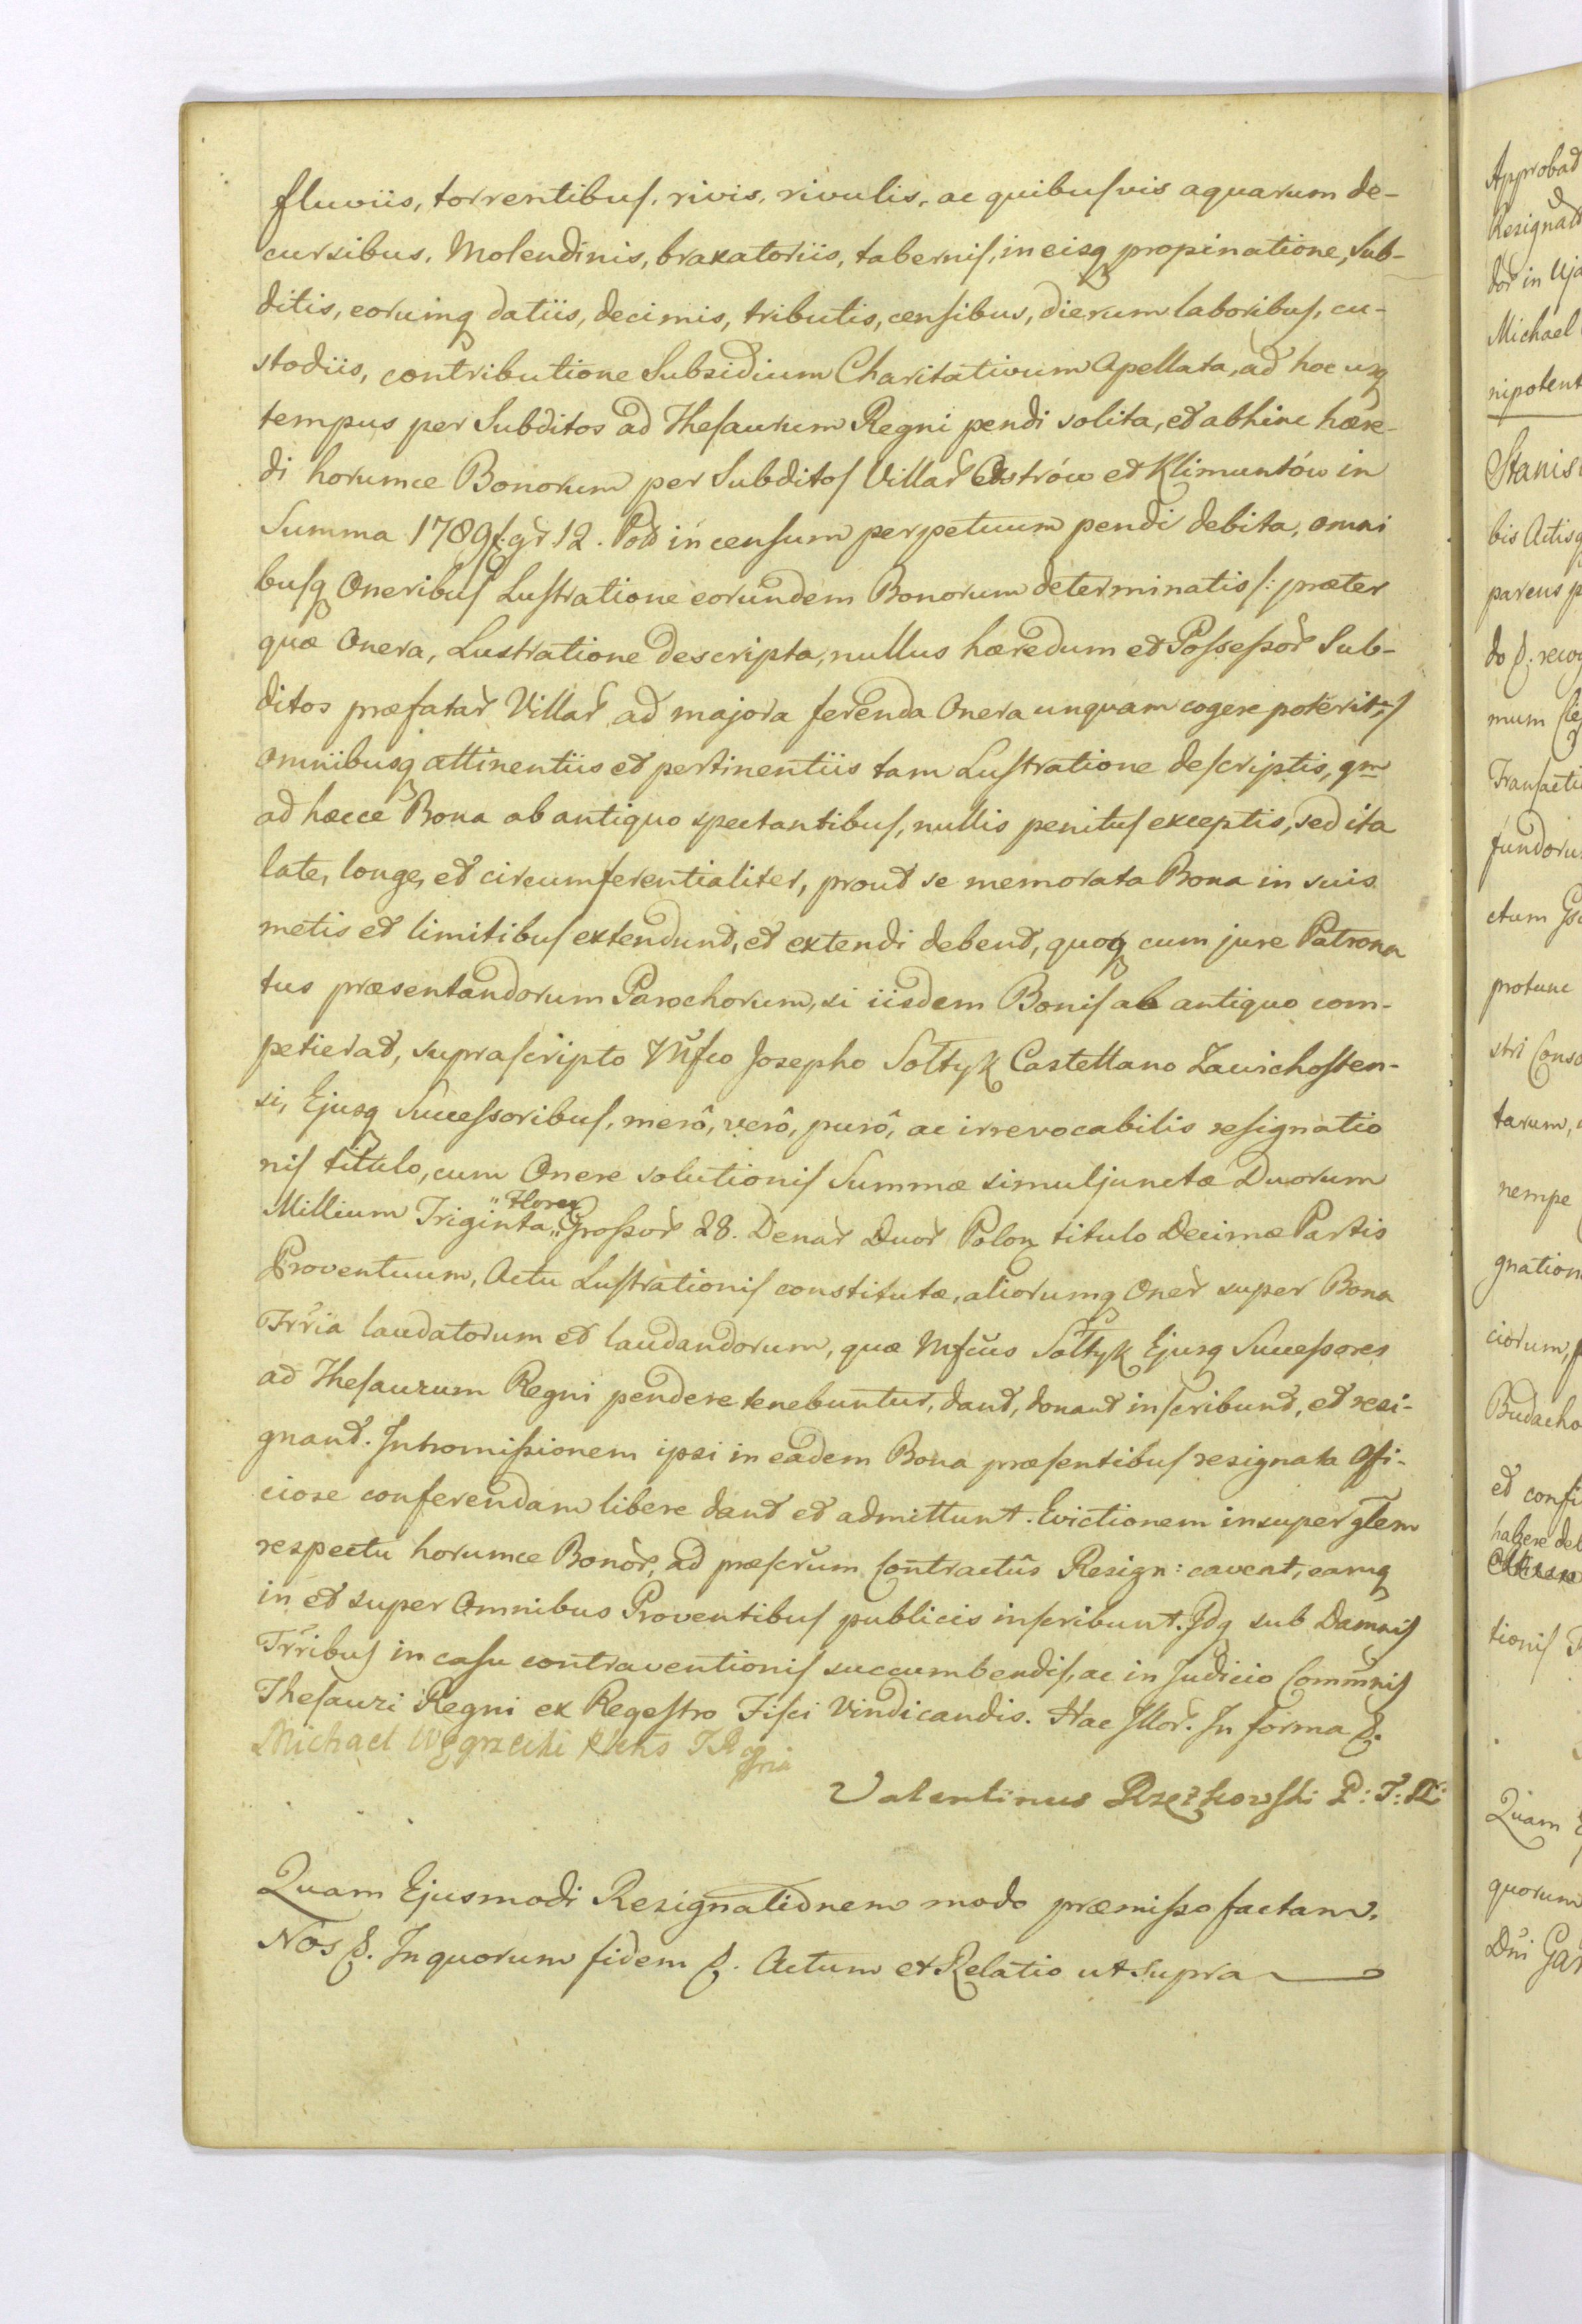 fluviis, torrentibus, rivis, rivulis, ac quibusvis aquarum de-
cursibus, Molendinis, braxatoriis, tabernis, in eisq propinatione, Sub-
ditis, eorumq datiis, decimis, tributis, censibus, dierum laboribus, cu-
stodiis, contributione Subsidium Charitativum Apellata, ad hoc usq
tempus per Subditos ad Thesaurum Regni pendi solita, et abhinc hære-
di horumce Bonorum per Subditos Villar Ostrów et Klimuntów in
Summa 1789 f. gr 12. Pol in censum perpetuum pendi debita, omni
busq Oneribus Lustratione eorundem Bonorum determinatis /: præter
quæ Onera, Lustratione descripta, nullus hæredum et Possessor Sub-
ditos præfatar Villar ad majora ferenda Onera unquam cogere poterit :/
Omnibusq attinentiis et pertinentiis tam Lustratione descriptis, qm
ad hæcce Bona ab antiquo spectantibus, nullis penitus exceptis, sed ita
late, longe, et circumferentialiter, prout se memorata Bona in suis
metis et limitibus extendunt, et extendi debent, quoq cum jure Patrona
tus præsentandorum Parochorum, si iisdem Bonis ab antiquo com-
petierat, suprascripto Mfco Josepho Sołtyk Castellano Zawichosten-
si, Ejusq Successoribus, merô, verô, purô, ac irrevocabilis resignatio
nis titulo, cum Onere solutionis Summæ simuljunctæ Duorum
Millium Triginta "Floren" Grossor 28. Denar Duor Polon titulo Decimæ Partis
Proventuum, Actu Lustrationis constitutæ, aliorumq Oner super Bona
Trria laudatorum et laudandorum, quæ Mfcus Sołtyk Ejusq Successores
ad Thesaurum Regni pendere tenebuntur, dant, donant inscribunt, et resi-
gnant. Intromissionem ipsi in eadem Bona præsentibus resignata Offi-
ciose conferendam libere dant et admittunt. Evictionem insuper glem
respectu horumce Bonor, ad præscrum Contractûs Resign: cavent, eamq
in et super Omnibus Proventibus publicis inscribunt. Idq sub Damnis
Trribus in casu contraventionis succumbendis, ac in Judicio Commnis
Thesauri Regni ex Regestro Fisci Vindicandis. Hac Illor. In forma &.
Michael Węgrzecki
Valentinus Rzętkowski P: T: R:
Quam Ejusmodi Resignationem modo præmisso factam.
Nos &. In quorum fidem &. Actum et Relatio ut supra
Approbat
Resignat
dor in Uja
Michael
nipotent
Stanis
bis Actisq
parens p
do &. recog
mum
Transacti
fundoru
ctum
protunc
stri Conso
tarum,
nempe
gnation
ciorum,
Budacho
et confi
habere deb
tionis
Quam
quorum
Dni Gar